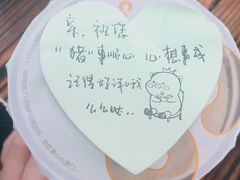 亲,祝您
"猪"事顺心 心想事成
记得好评哦
么么哒..